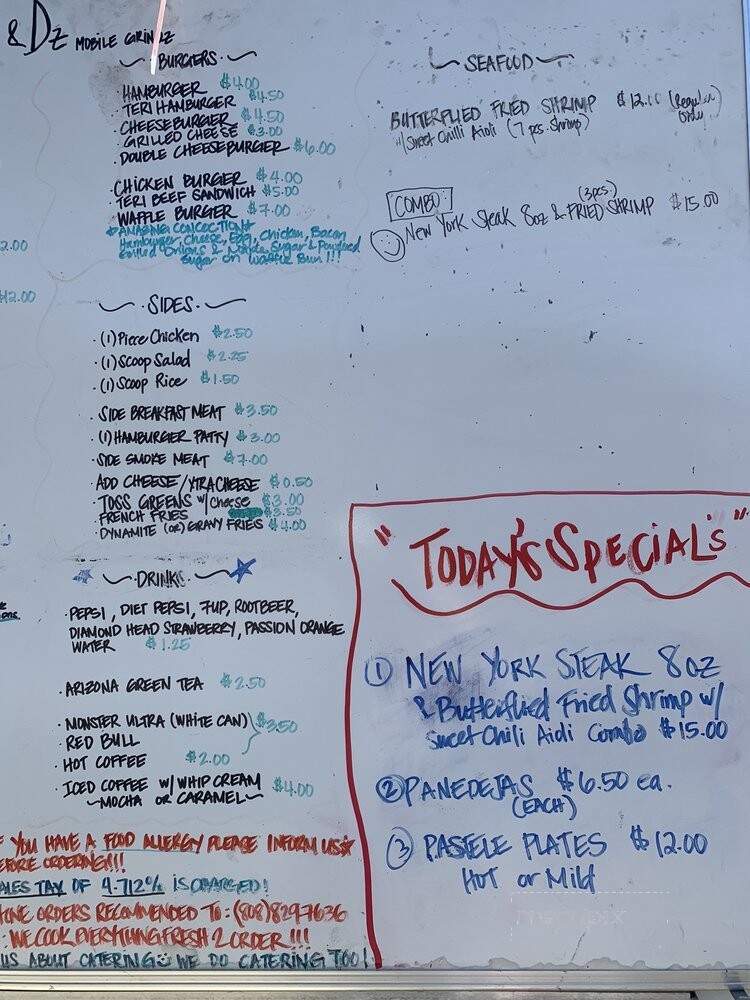 & Dz MOBILE GRINDZ
BURGERS
HAMBURGER $4.00
TERI HAMBURGER $4.50
CHEESEBURGER $4.50
GRILLED CHEESE $3.00
DOUBLE CHEESEBURGER $6.00
CHICKEN BURGER $4.00
TERI BEEF SANDWICH $5.00
WAFFLE BURGER $7.00
AMAZING CONCOCTION
Hamburger, Cheese, Egg, Chicken, Bacon
Grilled Onions & White Sugar & Powdered
Sugar on Waffle Bun!!!
2.00
12.00
SIDES
(1) Piece Chicken $2.50
(1) Scoop Salad $2.25
(1) Scoop Rice $1.50
SIDE BREAKFAST MEAT $3.50
(1) HAMBURGER PATTY $3.00
SIDE SMOKE MEAT $7.00
ADD CHEESE/XTRA CHEESE $0.50
TOSS GREENS w/ Cheese $3.00
FRENCH FRIES $3.50
DYNAMITE (OR) GRAVY FRIES $4.00
DRINKS
PEPSI, DIET PEPSI, 7UP, ROOTBEER,
DIAMOND HEAD STRAWBERRY, PASSION ORANGE
WATER $1.25
ARIZONA GREEN TEA $2.50
MONSTER ULTRA (WHITE CAN) $3.50
RED BULL
HOT COFFEE $2.00
ICED COFFEE W/ WHIP CREAM $4.00
~MOCHA OR CARAMEL~
YOU HAVE A FOOD ALLERGY PLEASE INFORM US
EFORE ORDERING!!!
ALES TAX OF 4.712% IS CHARGED!
ONE ORDERS RECOMMENDED TO: (808)829-7636
WE COOK EVERYTHING FRESH 2 ORDER!!!
US ABOUT CATERING WE DO CATERING TOO!
SEAFOOD
BUTTERFLIED FRIED SHRIMP $12.00 (Regular Only)
w/ Sweet Chilli Aioli (7 pcs. Shrimp)
COMBO:
(3pcs.)
New York Steak 8oz & FRIED SHRIMP $15.00
"TODAY'S SPECIALS"
1 NEW YORK STEAK 8oz
& Butterflied Fried Shrimp w/
Sweet Chili Aioli Combo $15.00
2 PANEDEJAS $6.50 ea.
(EACH)
3 PASTELE PLATES $12.00
HOT or Mild